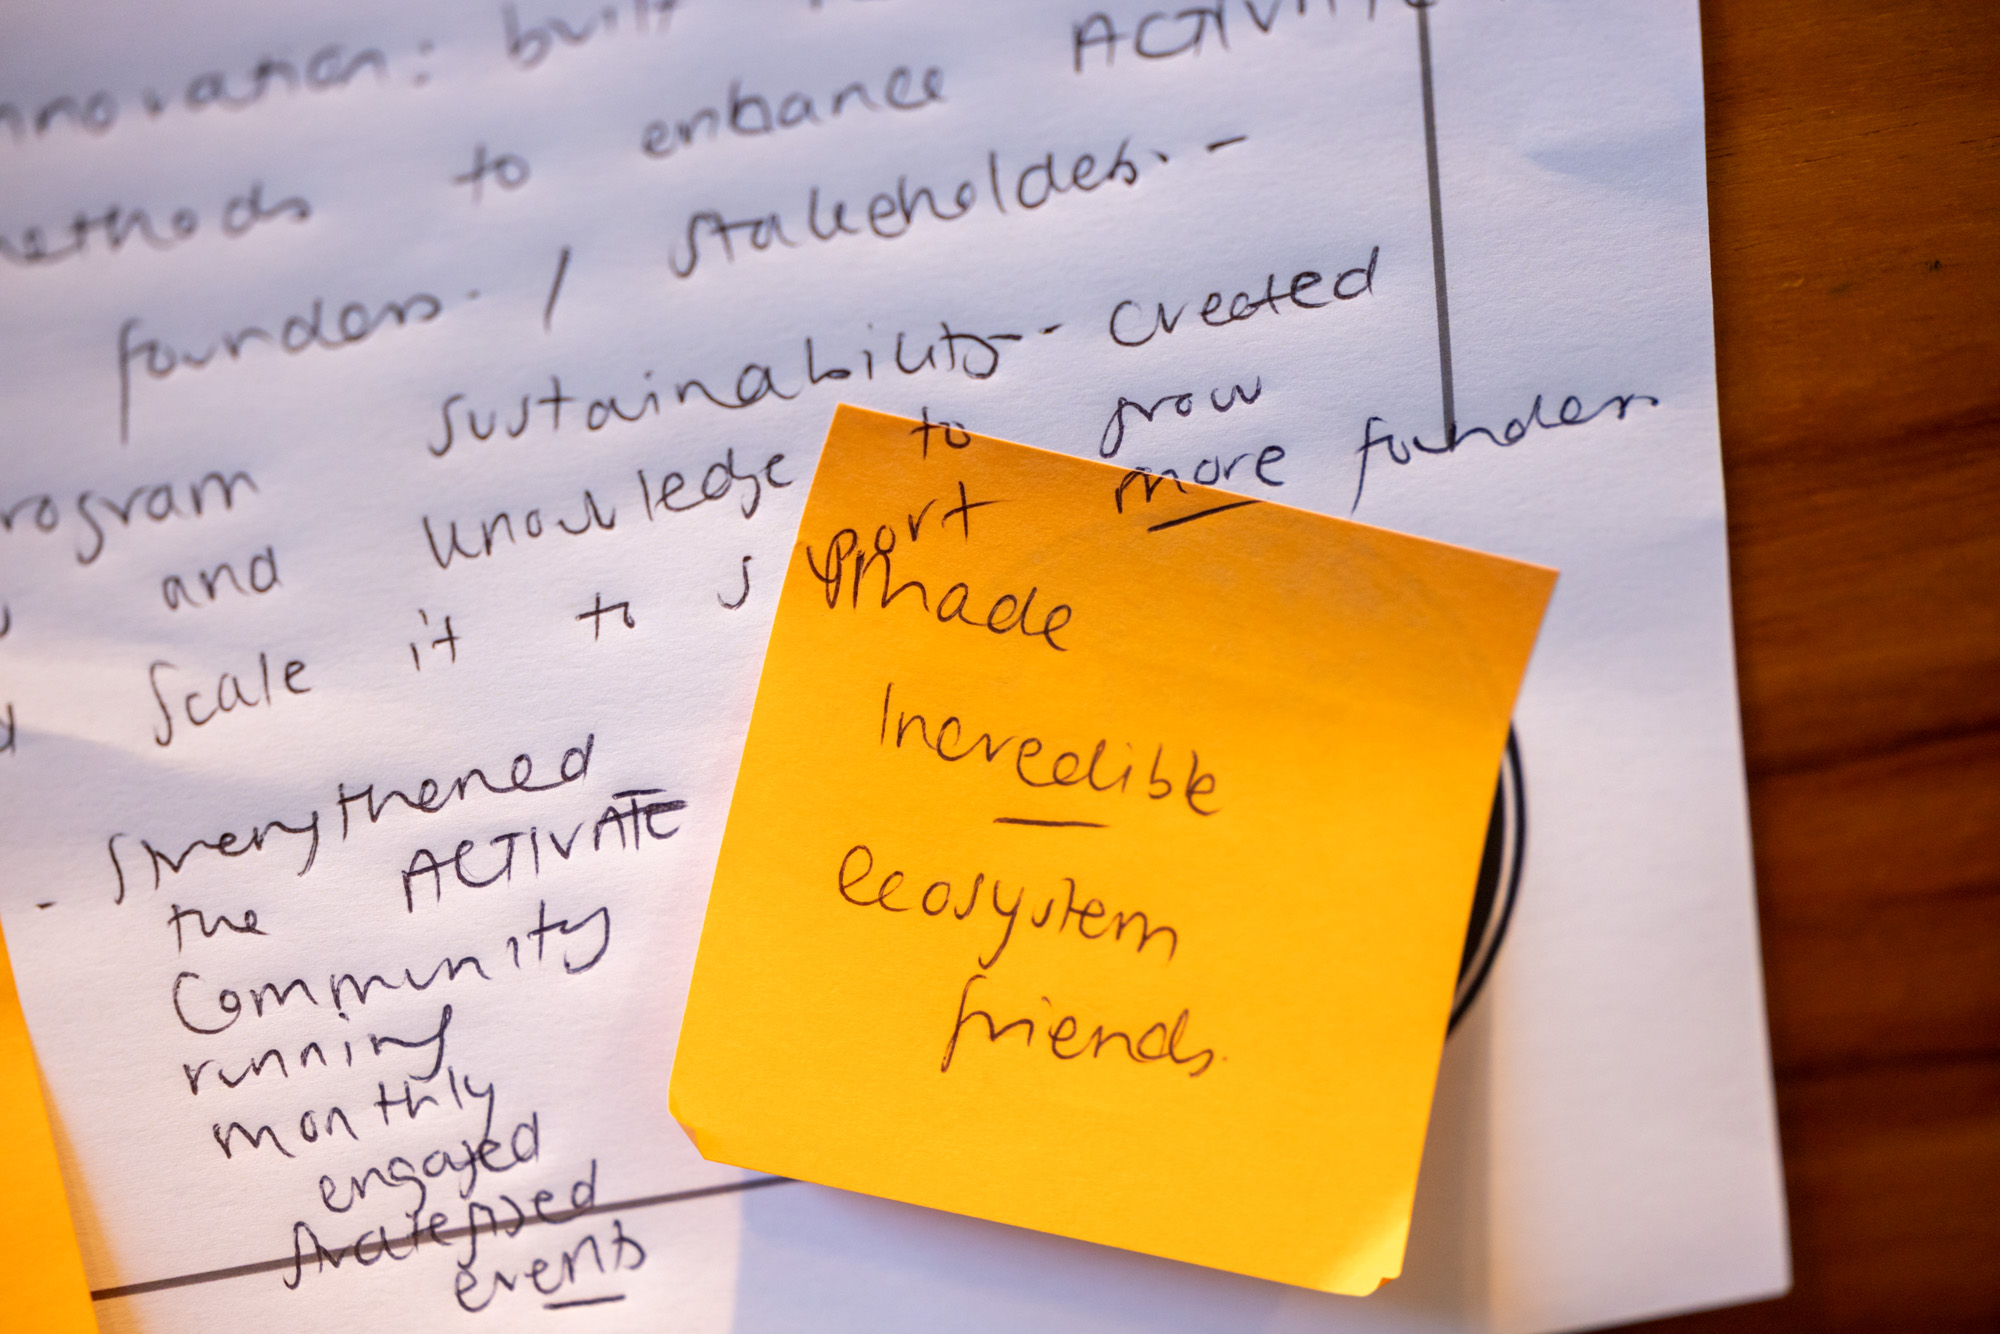 nnovation: built
ethods to enhance ACTIVATE
founders. / stakeholdes. -
rogram sustainability - - created
and knowledge to grow
scale it to support more founders
- Strengthened
the ACTIVATE
Community
running
monthly
engaged
strategised
events
Made
Incredible
ecosystem
friends.